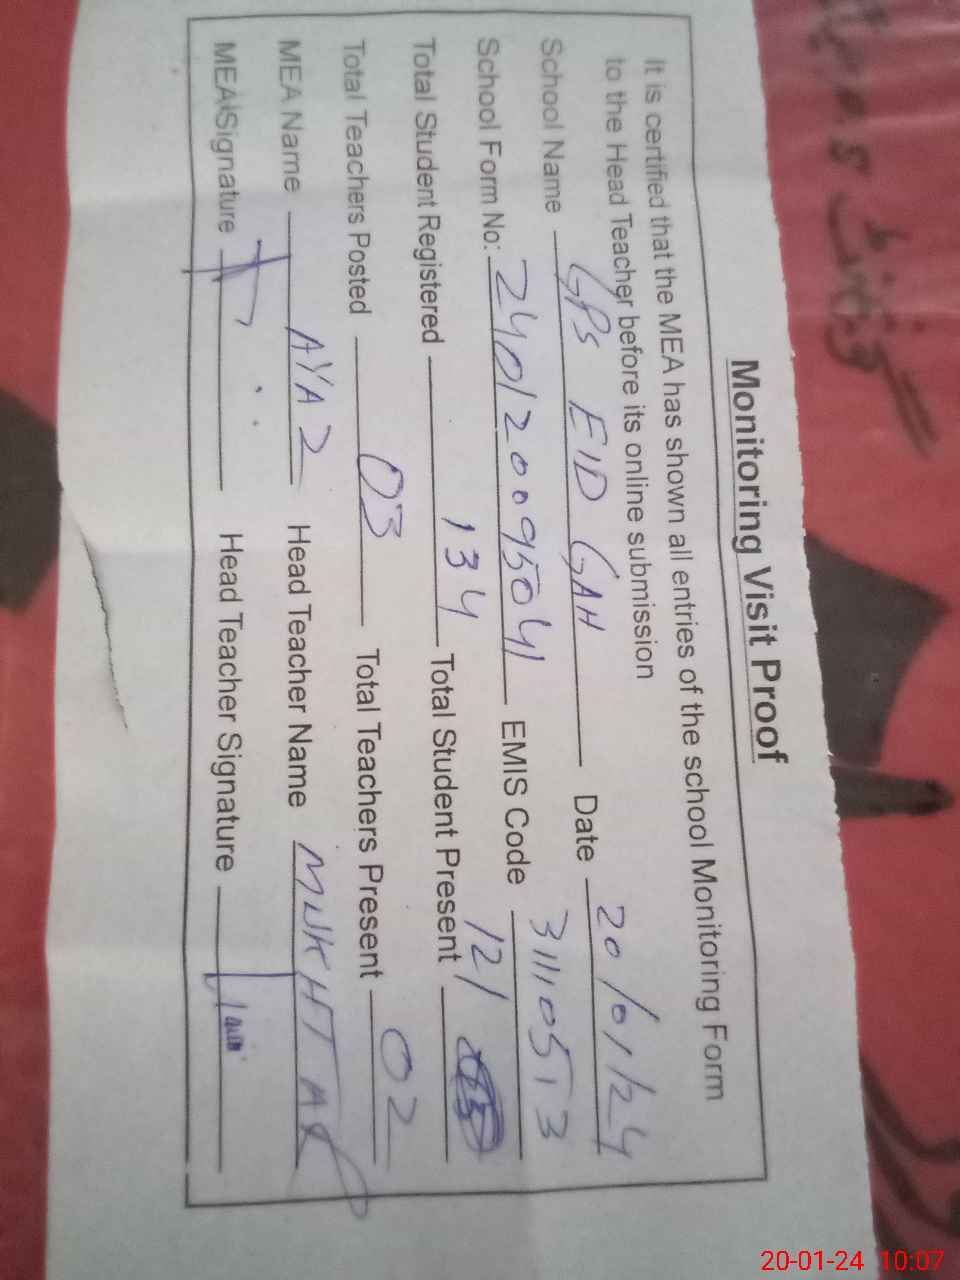 Monitoring Visit Proof
It is certified that the MEA has shown all entries of the school Monitoring Form
to the Head Teacher before its online submission
School Name GPS EID GAH Date 20/01/24
School Form No: 240120095041 EMIS Code 31110513
Total Student Registered 134 Total Student Present 121
Total Teachers Posted 03 Total Teachers Present 02
MEA Name AYAZ Head Teacher Name MUKHTAR
MEA Signature Head Teacher Signature
20-01-24 10:07